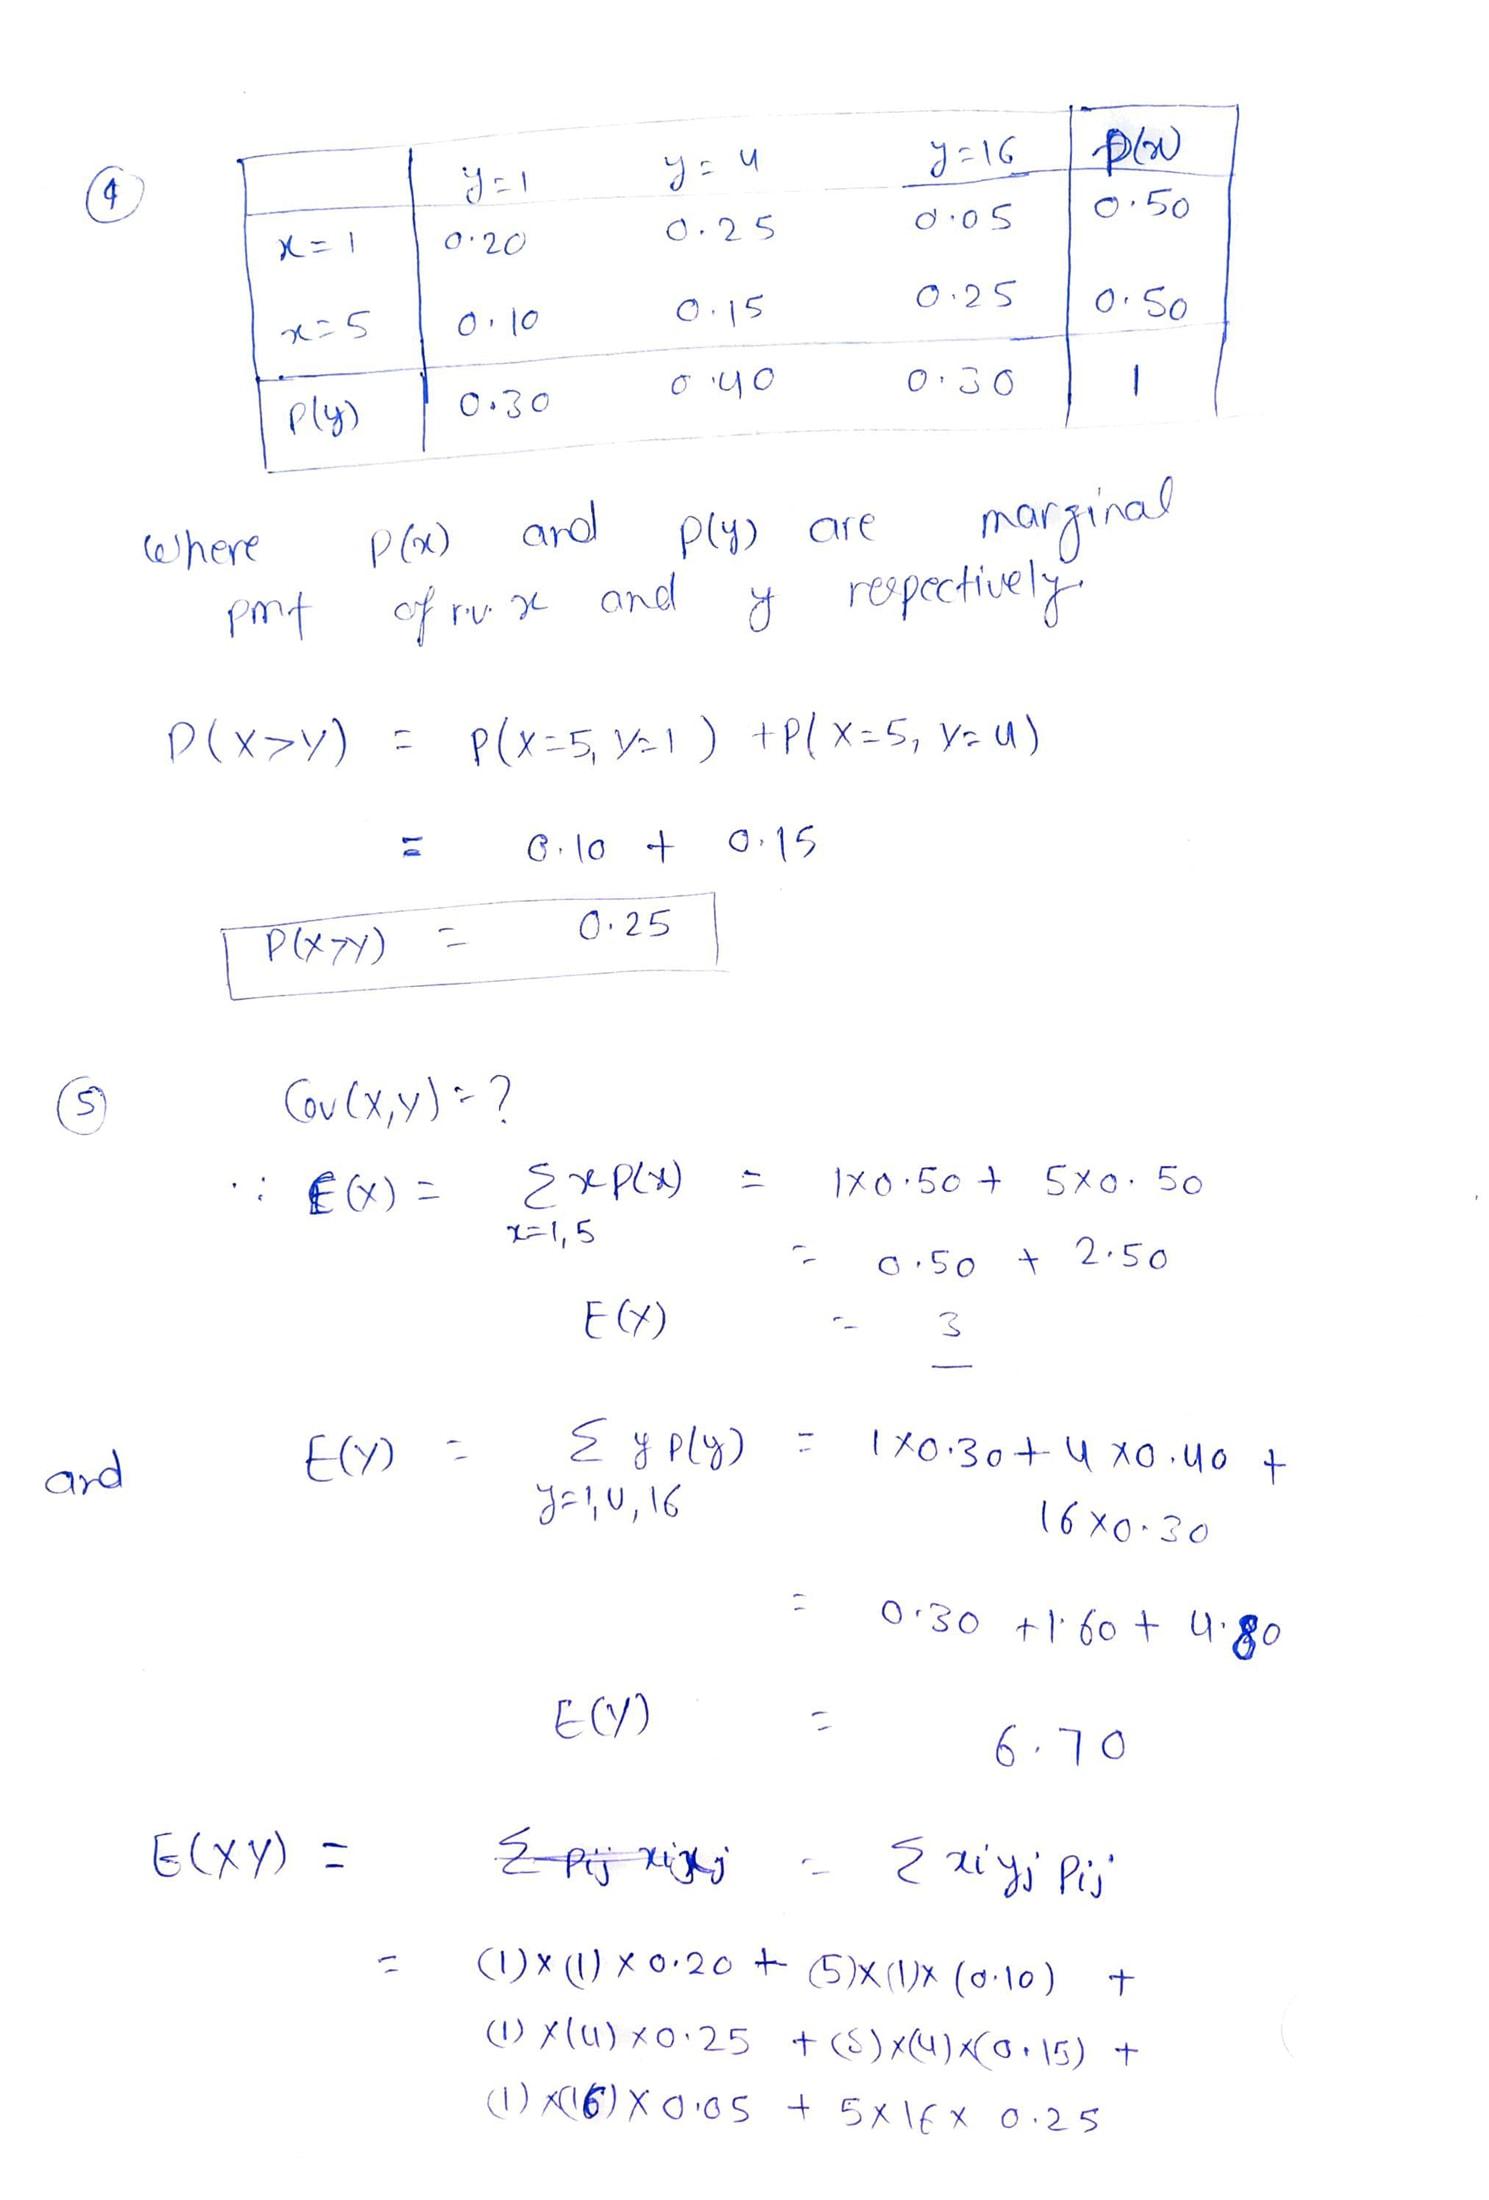 ④
y=1 y=4 y=16 p(x)
x=1 0.20 0.25 0.05 0.50
x=5 0.10 0.15 0.25 0.50
P(y) 0.30 0.40 0.30 1
where p(x) and p(y) are marginal
pmf of r.v. x and y respectively.
P(X>Y) = P(X=5, Y=1) + P(X=5, Y=4)
= 0.10 + 0.15
P(X>Y) = 0.25
⑤ Cov(X,Y) = ?
∵ E(X) = Σ x p(x) = 1×0.50 + 5×0.50
x=1,5
= 0.50 + 2.50
E(X) = 3
and E(Y) = Σ y p(y) = 1×0.30 + 4×0.40 +
y=1,4,16
16×0.30
= 0.30 + 1.60 + 4.80
E(Y) = 6.70
E(XY) = Σ pij xi xj = Σ xi yj pij
= (1)×(1)×0.20 + (5)×(1)×(0.10) +
(1)×(4)×0.25 + (5)×(4)×(0.15) +
(1)×(16)×0.05 + 5×16×0.25